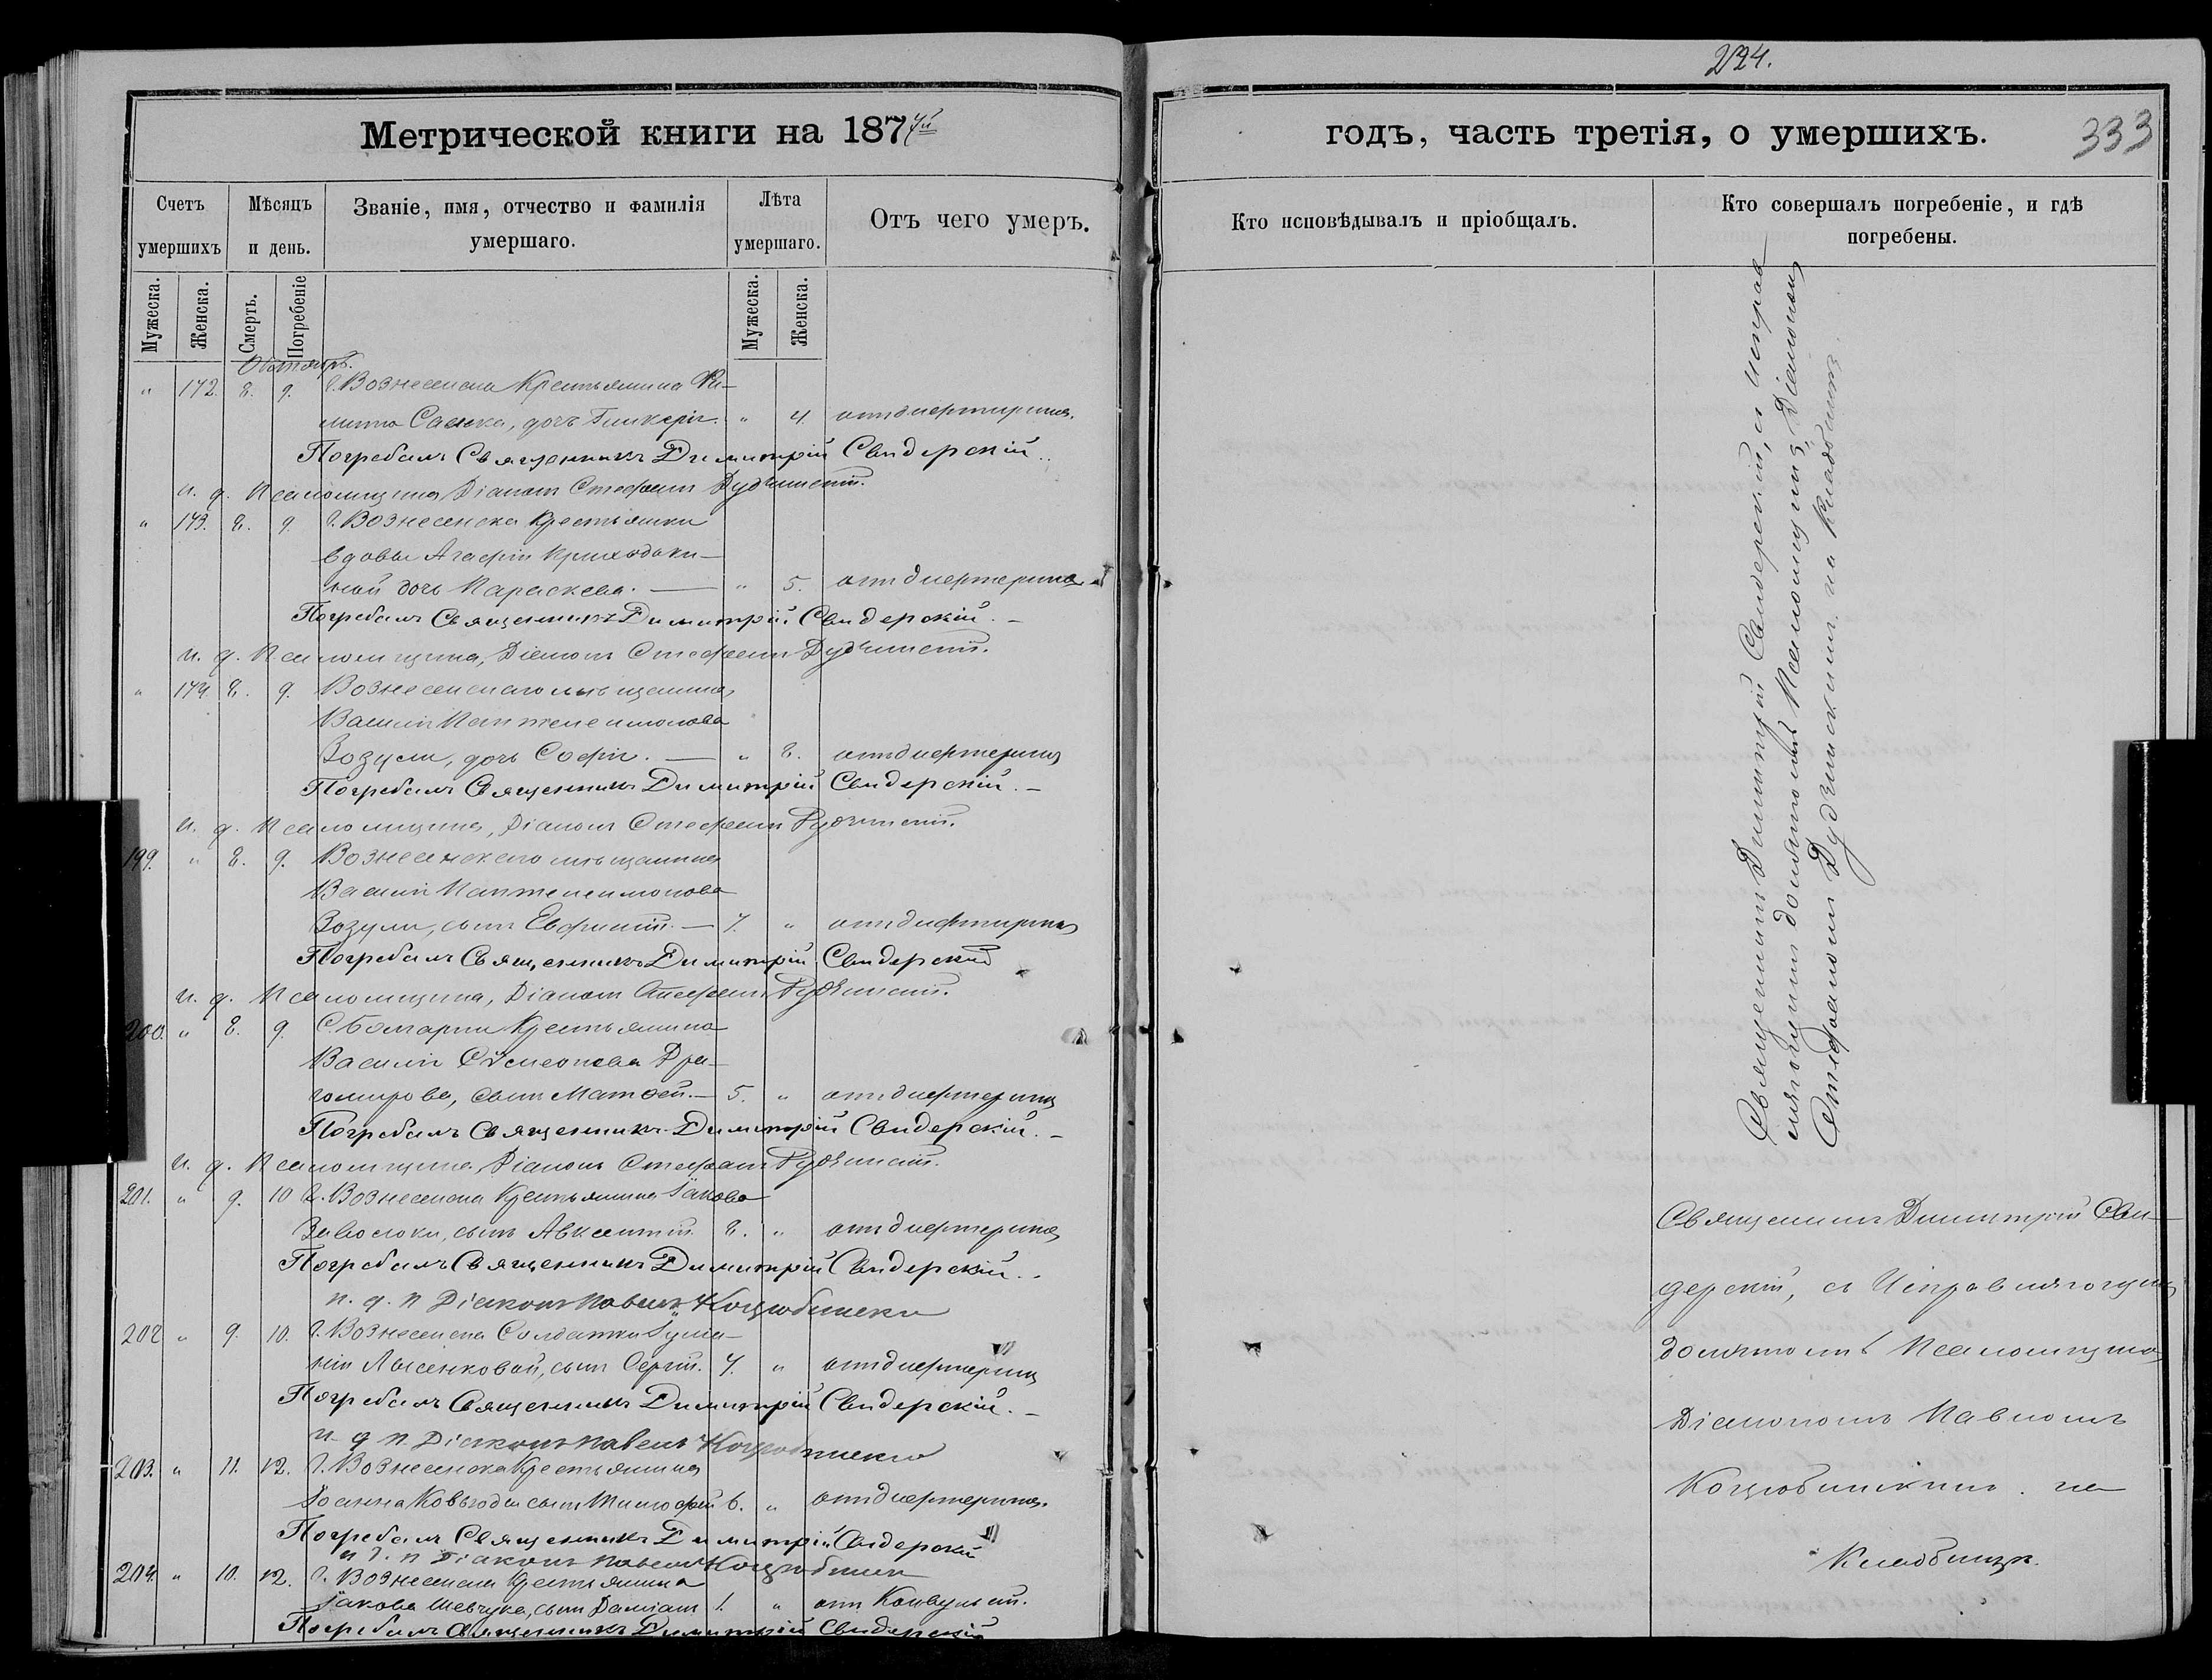 224.
333
Метрической книги на 1877й
годъ, часть третія, о умершихъ.
Счетъ умершихъ
Мѣсяцъ и день.
Званіе, имя, отчество и фамилія умершаго.
Лѣта умершаго.
Отъ чего умеръ.
Кто исповѣдывалъ и пріобщалъ.
Кто совершалъ погребеніе, и гдѣ погребены.
Мужеска.
Женска.
Смерть.
Погребеніе
Мужеска.
Женска.
Октябрь.
" 172. 8. 9. г. Вознесенска Крестьянина
дочь Гликерія. " 4. отъ дифтерита.
Погребалъ Священникъ Димитрій Свидерскій.
и. д. Псаломщика Діаконъ Стефанъ Дудчинскій.
" 173. 8. 9. г. Вознесенска Крестьянки
вдовы Агафіи Криходьки-
ной дочь Параскева. — " 5. отъ дифтерита
Погребалъ Священникъ Димитрій Свидерскій. —
и. д. Псаломщика, Діаконъ Стефанъ Дудчинскій.
" 174. 8. 9. Вознесенскаго мѣщанина
Василія Пантелеимонова
Зозули, дочь Софія. — " 8. отъ дифтерита
Погребалъ Священникъ Димитрій Свидерскій. —
и. д. Псаломщика, Діаконъ Стефанъ Дудчинскій.
199. " 8. 9. Вознесенскаго мѣщанина
Василія Пантелеимонова
Зозули, сынъ Евфимій. — 7. " отъ дифтерита
Погребалъ Священникъ Димитрій Свидерскій
и. д. Псаломщика, Діаконъ Стефанъ Дудчинскій.
200. " 8. 9. С. Болгарки Крестьянина
Василія Сѵмеонова Дра-
гомирова, сынъ Матѳей. — 5. " отъ дифтерита
Погребалъ Священникъ Димитрій Свидерскій. —
и. д. Псаломщика Діаконъ Стефанъ Дудчинскій.
201. " 9. 10 г. Вознесенска Крестьянина Іакова
Заволоки, сынъ Авксентій. 8. " отъ дифтерита
Погребалъ Священникъ Димитрій Свидерскій.
и. д. п Діаконъ Павелъ Коцюбинскій
202 " 9. 10. г. Вознесенска Солдатки Іулiа-
ніи Лысенковой, сынъ Сергій. 7. " отъ дифтерита
Погребалъ Священникъ Димитрій Свидерскій. —
и д п Діаконъ Павелъ Коцюбинскій
203. " 11. 12. г. Вознесенска Крестьянина
Іоанна сынъ Тимофей 6. " отъ дифтерита.
Погребалъ Священникъ Димитрій Свидерскій
и д. п Діаконъ Павелъ Коцюбинскій
204. " 10. 12. г. Вознесенска Крестьянина
Іакова Шевчука, сынъ Даміанъ 1. " отъ Конвульсій.
Погребалъ Священникъ Димитрій Свидерскій
Священникъ Димитрій Свидерскій, съ исправ
ляющимъ должность Псаломщика, Діакономъ
Стефаномъ Дудчинскимъ. на кладбищѣ.
Священникъ Димитрій Сви-
дерскій, съ Исправляющимъ
должность Псаломщика
Діакономъ Павломъ
Коцюбинскимъ. на
Кладбищѣ.